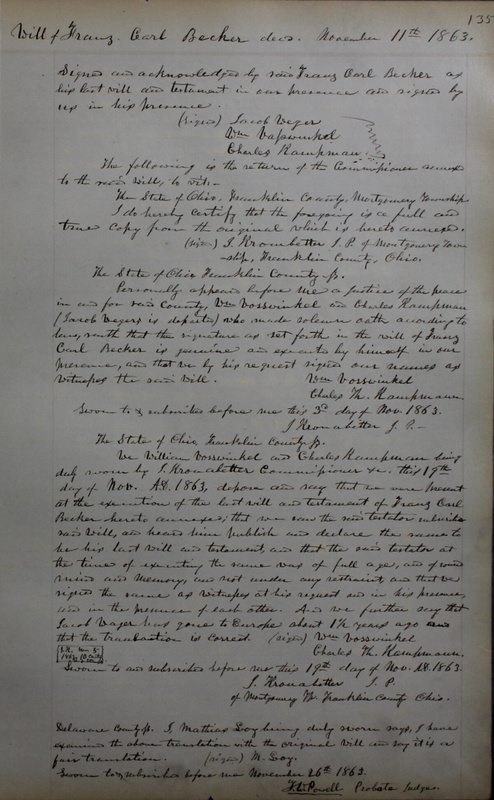 135
Will of Franz Carl Becker decd. November 11th 1863.
Signed and acknowledged by said Franz Carl Becker as
his last will and testament in our presence and signed by
us in his presence.
(signed) Jacob Veger
Wm Vosswinkel
Charles Kampman
The following is the return of the Commissioner annexed
to the said Will, to wit:-
The State of Ohio, Franklin County, Montgomery Township
I do hereby certify that the foregoing is a full and
true copy from the original which is hereto annexed.
(sign) J. Kronabetter J. P. of Montgomery Town
-ship, Franklin County, Ohio.
The State of Ohio Franklin County ss.
Personally appeared before me a Justice of the peace
in and for said County, Wm Vosswinkel and Charles Kampman
(Jacob Vegers is departed) who made solemn oath according to
law, saith that the signature as set forth in the will of Franz
Carl Becker is genuine and executed by himself in our
presence, and that we by his request signed our names as
witnesses the said will. Wm Vosswinkel
Charles Th. Kampmann.
Sworn to & subscribed before me this 3d day of Nov. 1863.
J Kronabetter J. P.-
The State of Ohio Franklin County ss.
We William Vosswinkel and Charles Kampman being
duly sworn by J. Kronabetter Commissioner &c. this 19th
day of Nov. AD. 1863, depose and say that we were present
at the execution of the last will and testament of Franz Carl
Becker hereto annexed; that we saw the said testator subscribe
said Will, and heard him publish and declare the same to
be his last will and testament, and that the said testator at
the time of executing the same was of full age, and of sound
mind and memory, and not under any restraint, and that we
signed the same as witnesses at his request and in his presence,
and in the presence of each other. And we further say that
Jacob Vager has gone to Europe about 1½ years ago and
that the transaction is correct. (sign) Wm Vosswinkel
Charles Th. Kampmann.
Sworn to and subscribed before me this 19th day of Nov. AD. 1863.
J. Kronabetter J. P.
of Montgomery Tp. Franklin County Ohio.
Delaware County ss. I, Mathias Loy being duly sworn says, I have
examined the above translation with the original Will and say it is a
fair translation. (sign) M. Loy.
Sworn to & subscribed before me November 26th 1863.
Powell Probate Judge.